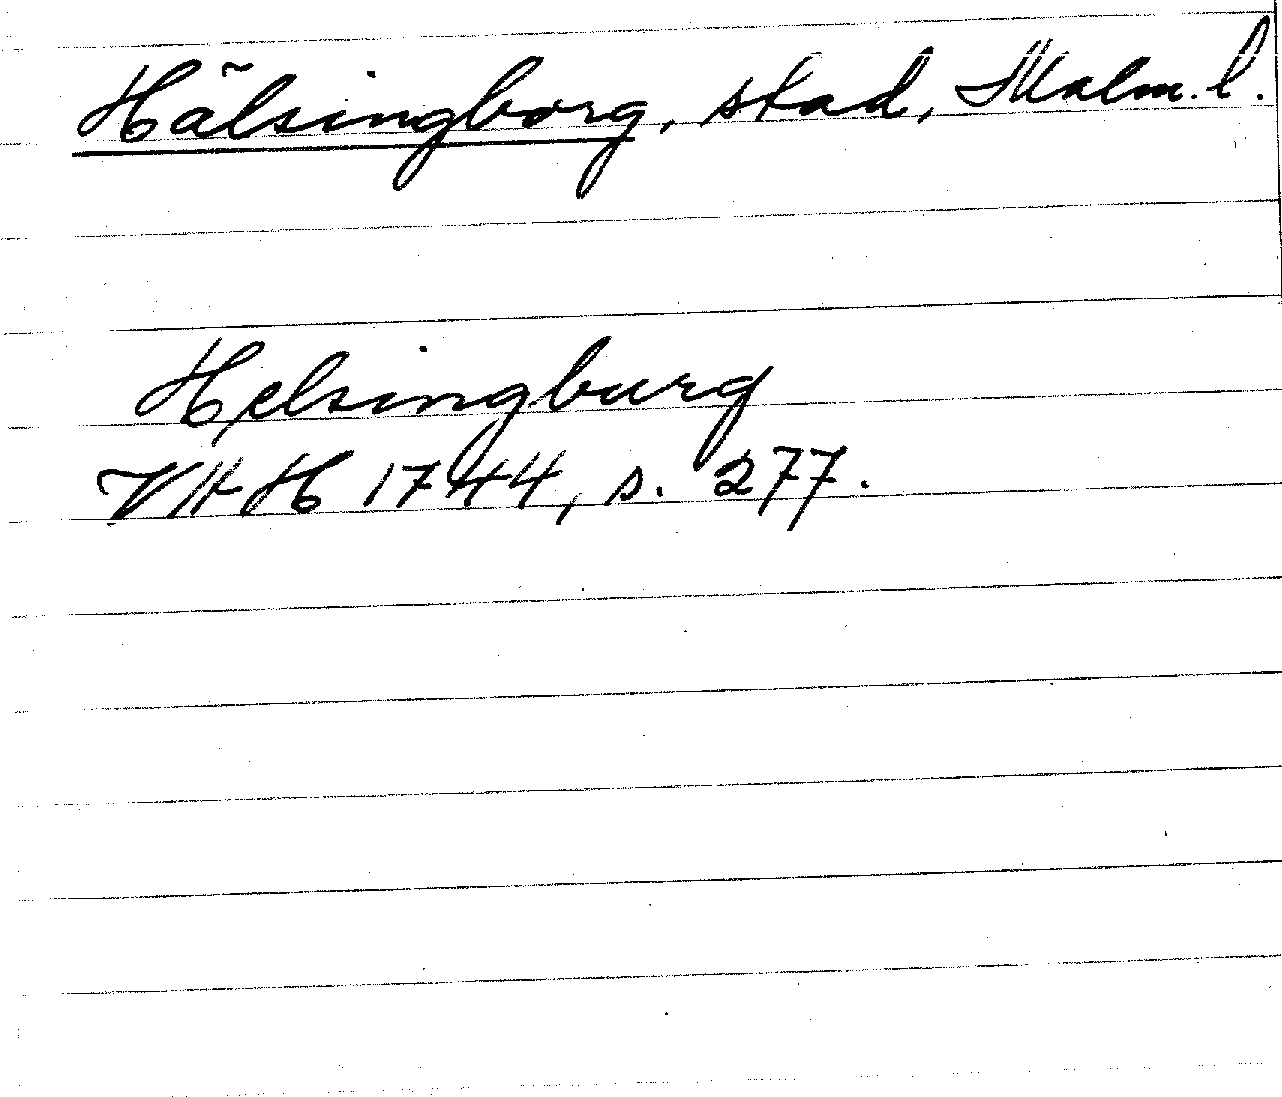 Hälsingborg, stad, Malm. l.
Helsingburg
VAH 1744, s. 277.